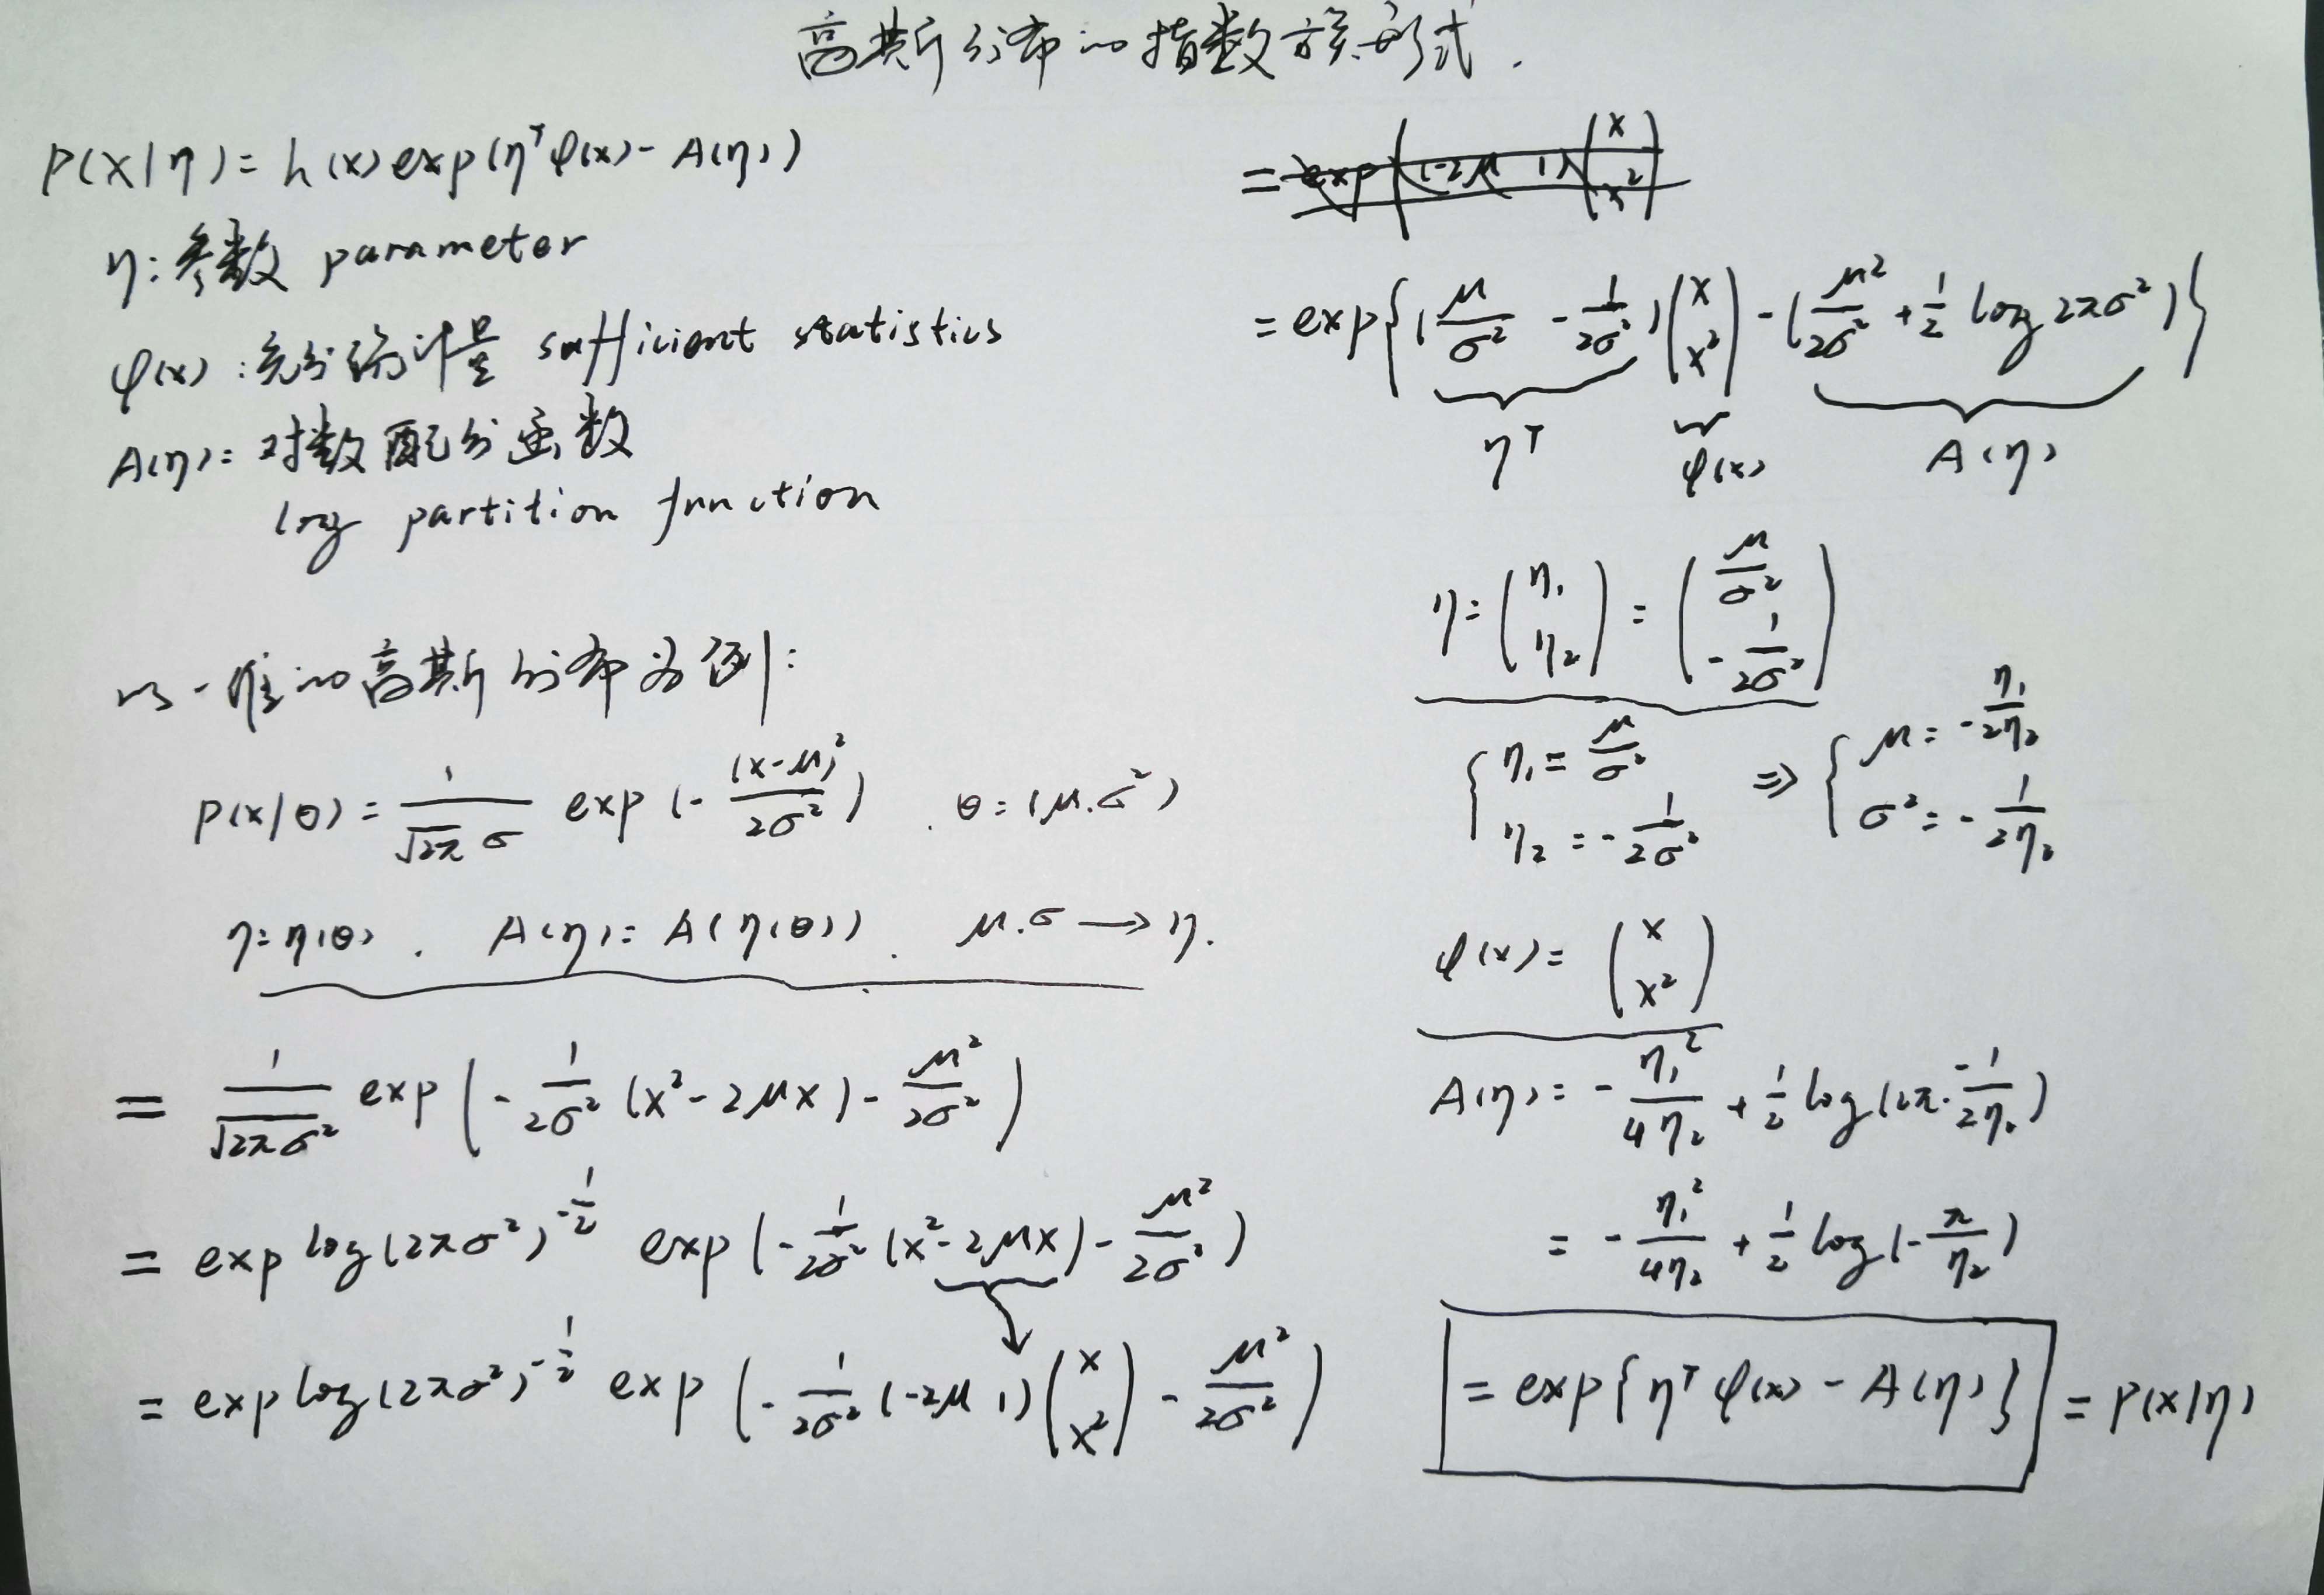 高斯分布的指数族形式.
P(x|η) = h(x) exp(ηᵀφ(x) - A(η))
η: 参数 parameter
φ(x): 充分统计量 sufficient statistics
A(η): 对数配分函数
log partition function
以一维的高斯分布为例:
P(x|θ) = \frac{1}{\sqrt{2π} σ} exp(- \frac{(x-μ)^2}{2σ^2}) . θ = (μ.σ^2)
η = η(θ) . A(η) = A(η(θ)) . μ.σ → η.
= \frac{1}{\sqrt{2πσ^2}} exp(- \frac{1}{2σ^2} (x^2 - 2μx) - \frac{μ^2}{2σ^2})
= exp log(2πσ^2)^{-\frac{1}{2}} exp(- \frac{1}{2σ^2} (x^2 - 2μx) - \frac{μ^2}{2σ^2})
= exp log(2πσ^2)^{-\frac{1}{2}} exp(- \frac{1}{2σ^2} (-2μ 1) \binom{x}{x^2} - \frac{μ^2}{2σ^2})
= exp ((-2μ 1) \binom{x}{x^2}
= exp{(\frac{μ}{σ^2} -\frac{1}{2σ^2}) \binom{x}{x^2} - (\frac{μ^2}{2σ^2} + \frac{1}{2} log 2πσ^2)}
ηᵀ φ(x) A(η)
η = \binom{η_1}{η_2} = \binom{\frac{μ}{σ^2}}{-\frac{1}{2σ^2}}
{ η_1 = \frac{μ}{σ^2} ⇒ { μ = -\frac{η_1}{2η_2}
η_2 = -\frac{1}{2σ^2} σ^2 = -\frac{1}{2η_2}
φ(x) = \binom{x}{x^2}
A(η) = -\frac{η_1^2}{4η_2} + \frac{1}{2} log(2π·\frac{-1}{2η_2})
= -\frac{η_1^2}{4η_2} + \frac{1}{2} log(-\frac{π}{η_2})
= exp{ηᵀφ(x) - A(η)} = P(x|η)